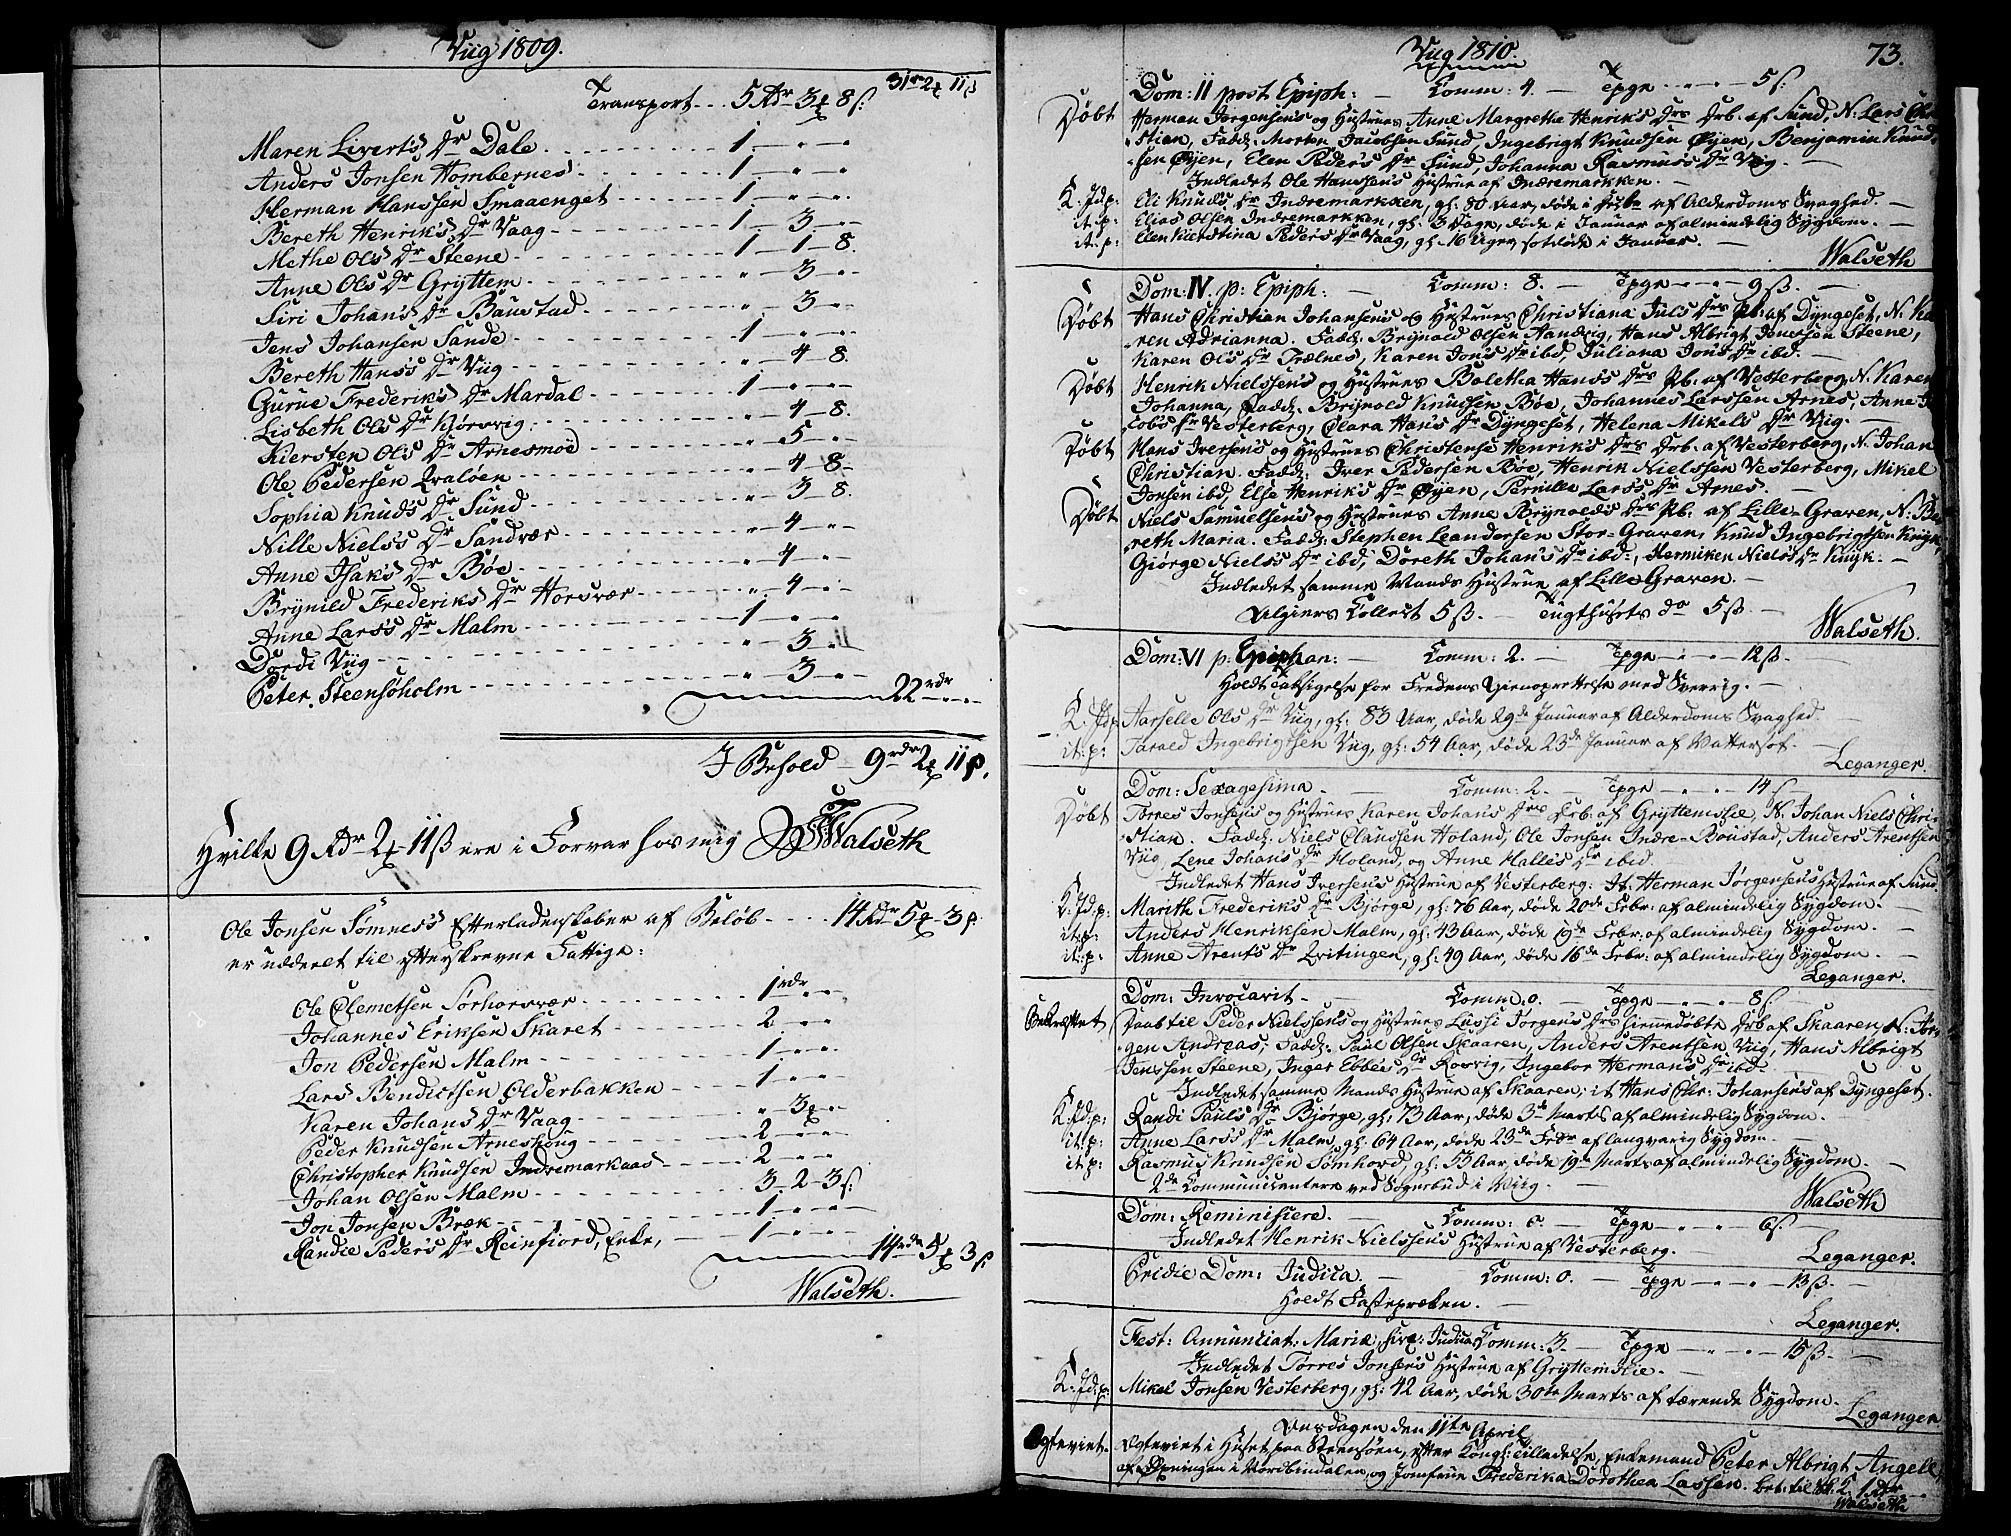 Viig 1809.
Transport 5 Rdr 3 8 ß. 31 2 11 ß
Maren Liverts Dr Dale 1 " "
Anders Jonsen Hombernes 1 " "
Herman Hanssen Smaaenget 1 " "
Bereth Henriks Dr Vaag 1 3 "
Methe Ols Dr Steene 1 1 8.
Anne Ols Dr Gryttem " 3 "
Siri Johans Dr Baustad " 3 "
Jens Johansen Sande 1 " "
Bereth Hans's Dr Viig " 4 8.
Gurue Frederiks Dr Mardal 1 " "
Lisbeth Ols Dr Kjørvig " 4 8.
Kiersten Ols Dr Arnesmoe " 5 "
Ole Pedersen Qvaløen " 4 8
Sophia Knuds Dr Sund " 3 8.
Nille Niels's Dr Sandvær " 4 "
Anne Isaks Dr Bøe " 4 "
Brynild Frederiks Dr Horsvær " 4 "
Anne Lars's Dr Malm 1 " "
Dordi Viig " 3 "
Peter Steensøholm " 3 "
22 rdr " "
I Behold 9 rdr 2 11 ß.
Hvilke 9 Rdr 2 11 ß ere i Forvar hos mig Walseth
Ole Jonsen Sømnes's Efterladenskaber af Beløb 14 Rdr 5 3 ß.
er uddeelt til efterskrevne Fattige:
Ole Clemetsen Sørhorsvær 1 rdr " "
Johannes Eriksen Skaret 2 " "
Jon Pedersen Malm 1 " "
Lars Bendictsen Olderbakken 1 " "
Karen Johans Dr Vaag " 3 "
Peder Knudsen Arneshoug 2 " "
Christopher Knudsen Indremarkaas 2 " "
Johan Olsen Malm 3 2 3 ß.
Jon Jonsen Bræk 1 " "
Randie Peders Dr Reinfiord, Enke, 1 " "
14 rdr 5 3 ß
Walseth.
Viig 1810. 73.
Dom: II post Epiph: Comm: 4. Tpge 5 ß.
Døbt Herman Jørgensens og Hustrues Anne Margrethe Henriks Drs Drb. af Sund, N. Lars
stian, Fadd: Morten Jacobsen Sund, Ingebrigt Knudsen Øyen, Benjamin Knud-
sen Øyen, Elen Peders Dr Sund, Johanna Rasmus's Dr Viig.
Indledet Ole Hanssens Hustrue af Indremarkken.
K. Jdp: Eli Knuds Dr Indremarkken, gl: 80 Aar, døde i af Alderdoms Svaghed.
it: p: Elias Olsen Indremarkken, gl: 3 Dage, døde i Januar af almindelig Sygdom.
it: p: Elen Kierstina Peders Dr Vaag, gl: 16 Uger, døde i Januar.
Walseth
Dom: IV. p: Epiph: Comm: 8. Tpge 9 ß.
Døbt Hans Christian Johansens og Hustrues Christiana Juls Drs Pb: af Dyngeset, N. Ka
ren Adrianna. Fadd: Brynold Olsen Aandvig, Hans Albrigt Jenssen Steene,
Karen Ols Dr Trælnes, Karen Jons Dr ibd, Juliana Jons Dr ibd.
Døbt Henrik Nielssens og Hustrues Boletha Hans's Drs Pb: af Vesterberg, N. Karen
Johanna, Fadd: Brynold Knudsen Bøe, Johannes Larssen Arnes, Anne Ja
cobs Dr Vesterberg, Clara Hans's Dr Dyngeset, Helena Mikels Dr Viig.
Døbt Hans Iversens og Hustrues Christense Henriks Drs Drb. af Vesterberg, N. Johan
Christian. Fadd: Iver Pedersen Bøe, Henrik Nielssen Vesterberg, Mikel
Jonsen ibd, Else Henriks Dr Øyen, Pernille Lars's Dr Arnes.
Døbt Niels Samuelsens og Hustrues Anne Brynolds Drs Pb: af Lille-Graven, N. Be
reth Maria. Fadd: Stephen Leandersen Stor-Graven, Knud Ingebrigtsen Knyk,
Giørge Niels's Dr ibd, Doreth Johans Dr ibd:, Hermiken Niels's Dr Knyk.
Indledet samme Mands Hustrue af Lille Graven.
Algiers Collect 5 ß. Tugthusets do 5 ß.
Walseth.
Dom: VI p: Epiphan: Comm: 2. Tpge 12 ß.
Holdt Taksigelse for Fredens Gjenoprettelse med Sverrig.
K. Jdp Aarselle Ols Dr Viig, gl: 83 Aar, døde 29de Januar af Alderdoms Svaghed.
it: p: Tarald Ingebrigtsen Viig, gl: 54 Aar, døde 23de Januar af Vattersot.
Leganger.
Dom: Sexagesima. Comm: 2. Tpge 14 ß
Døbt Tørres Jonsens og Hustrues Karen Johans Drs Drb. af Gryttemslie, N. Johan Niels Chri-
stian. Fadd: Niels Clausen Holand, Ole Jonsen Indre-Boustad, Anders Arentsen
Viig, Lene Johans Dr Holand, og Anne Halles Dr ibid.
Indledet Hans Iversens Hustrue af Vesterberg. It: Herman Jørgensens Hustrue af Sund.
K. Jd: p: Marith Frederiks Dr Bjørge, gl: 76 Aar, døde 20de Febr: af almindelig Sygdom.
it: p: Anders Henriksen Malm, gl: 43 Aar, døde 19de Febr: af almindelig Sygdom.
it: p: Anne Arents Dr Qvitingen, gl: 49 Aar, døde 16de Febr: af almindelig Sygdom.
Leganger.
Dom: Invocavit Comm: 0. Tpge 8 ß
Bekræftet Daab til Peder Nielssens og Hustrues Lussi Jørgens Drs hiemmedøbte Drb af Skaaren, N. Jør-
gen Andreas; Fadd: Paul Olsen Skaaren, Anders Arentsen Viig, Hans Albrigt
Jenssen Steene, Inger Ebbes Dr Rosvig, Ingebor Hermans Dr ibd.
Indledet samme Mands Hustrue af Skaaren, it Hans Chr: Johansens af Dyngeset.
K. Jd: p: Randi Pauls Dr Bjørge, gl: 73 Aar, døde 3de Marts af almindelig Sygdom.
it: p: Anne Lars's Dr Malm, gl: 64 Aar, døde 23de Febr af langvarig Sygdom.
it: p: Rasmus Knudsen Sømhovd, gl: 53 Aar, døde 19de Marts af almindelig Sygdom.
2de Communicentere ved Sognebud i Viig.
Walseth
Dom: Reminisiere. Comm: 0. Tpge 6 ß.
Indledet Henrik Nielssens Hustrue af Vesterberg.
Leganger.
Pridie Dom: Judica. Comm: 0. Tpge 13 ß.
Holdt Fastepræken.
Leganger.
Fest: Annunciat: Mariæ sive: Judica Comm: 3. Tpge 15 ß.
Indledet Tørres Jonsens Hustrue af Gryttemslie.
K. Jd: p: Mikel Jonsen Vesterberg, gl: 42 Aar, døde 30te Marts af tærende Sygdom.
Leganger
Onsdagen den 11te April,
Ægteviet. Ægteviet i Huset paa Steensøen, efter Kongl: Tilladelse, Enkemand Peter Albrigt Angell,
af i Nordbindalen, og Jomfrue Frederika Dorothea Lassen. bet: til K. 1 Rdr
Walseth